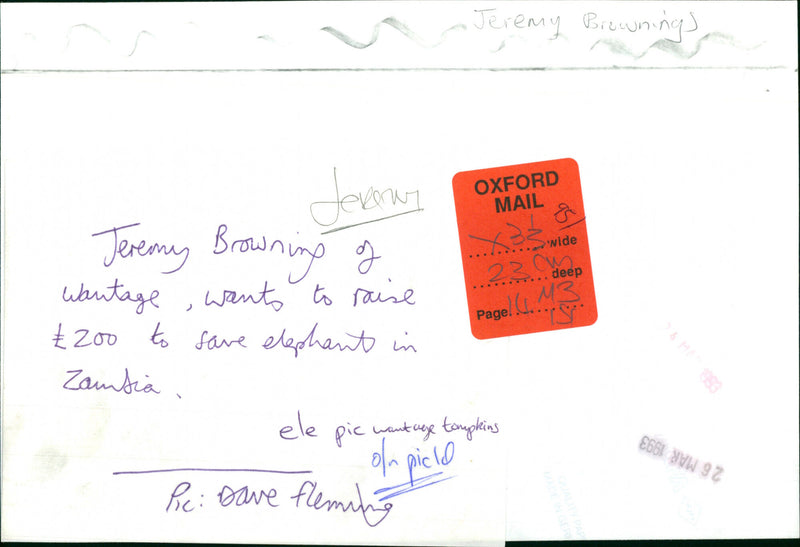 Jeremy Brownings
Jeremy
OXFORD
MAIL
X33 wide
23 cm deep
Page 14 M3
1st
Jeremy Browning of
Wantage, wants to raise
£200 to save elephants in
Zambia.
ele pic wantage tompkins
o/n picld
Pic: Dave Fleming
26 MAR 1993
26 MAR 1993